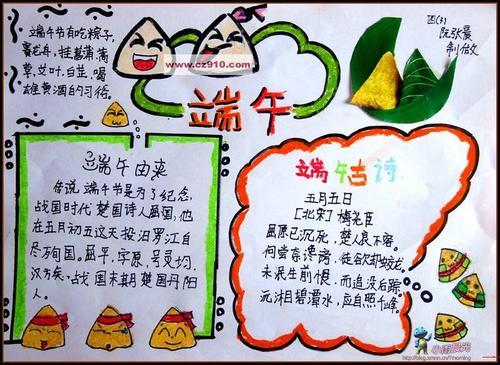 端午节有吃粽子,
赛龙舟,挂菖蒲蒿
草,艾叶,白芷,喝
雄黄酒的习俗。
www.cz910.com
端午
四(3)
阮张晨
制做
端午由来
传说端午节是为了纪念,
战国时代楚国诗人屈国,他
在五月初五这天投汨罗江自
尽殉国。屈平,字原,号灵均,
汉方矣。战国末期楚国丹阳
人。
端午古诗
五月五日
[北宋]梅尧臣
屈原已沉死,楚人哀不容。
何尝奈谗谤,徒欲却蛟龙。
未泯生前恨,而追没后踪。
沅湘碧潭水,应自照千峰。
小雨晨光